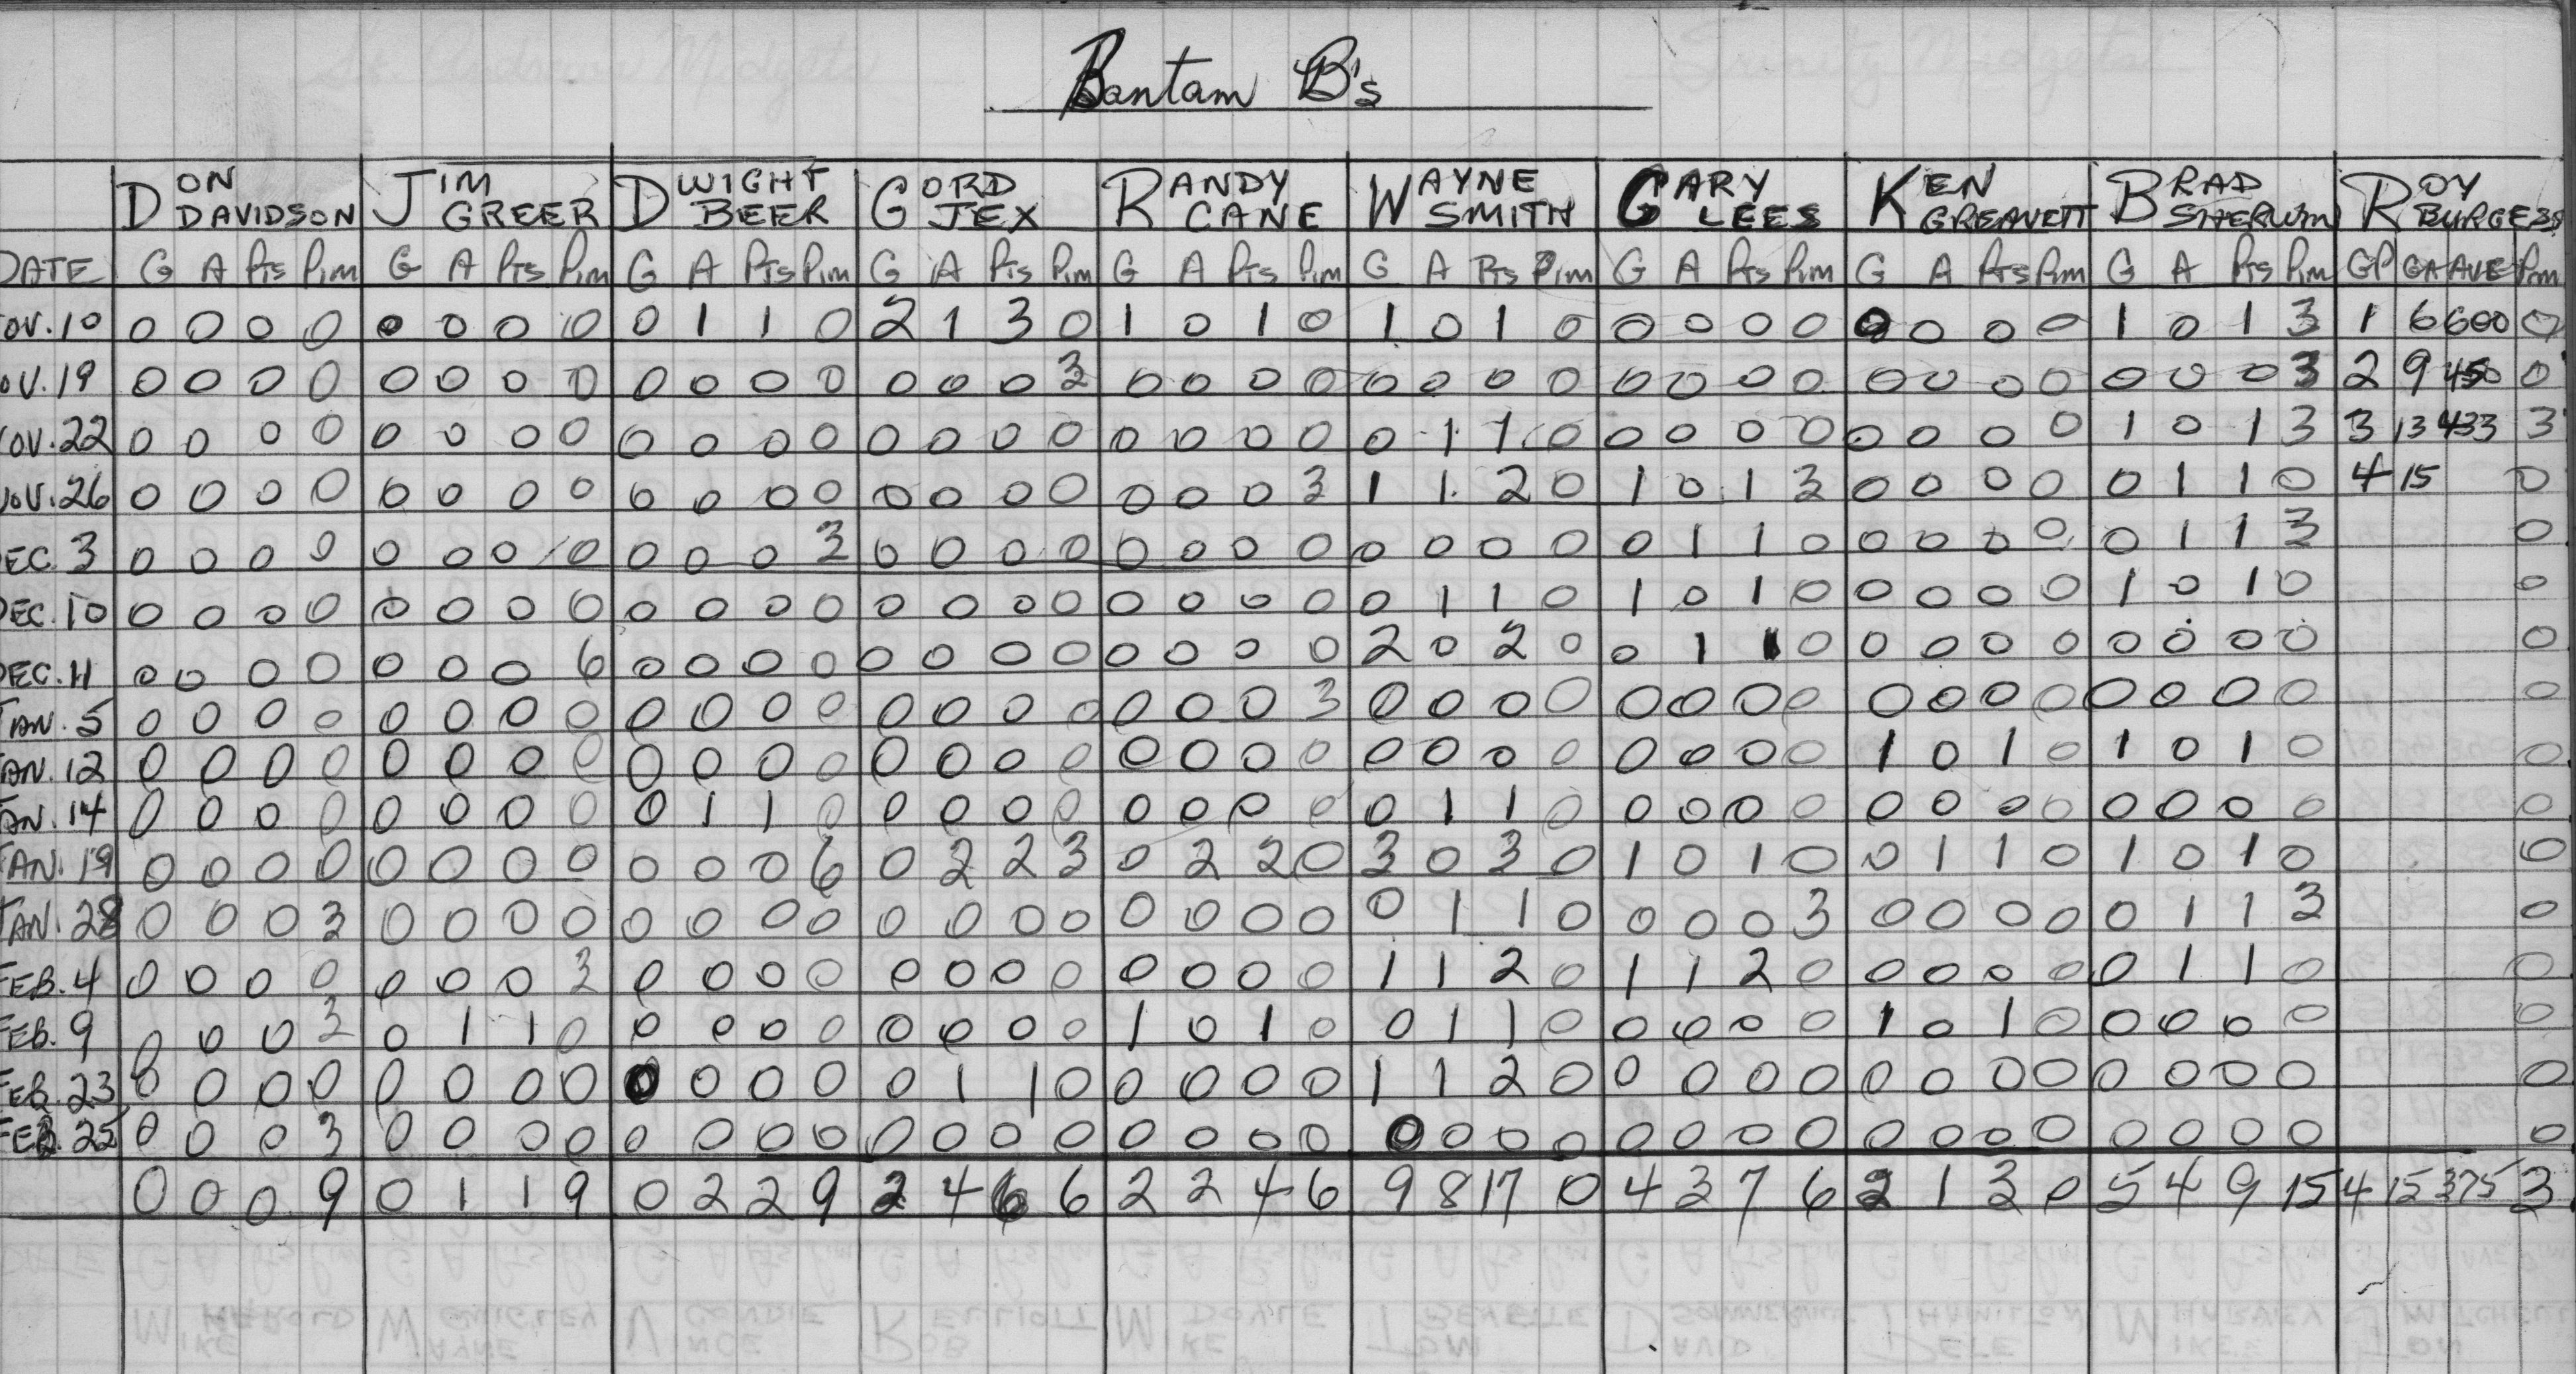 Bantam B's
DON DAVIDSON JIM GREER DWIGHT BEER GORD JEX RANDY CANE WAYNE SMITH GARY LEES KEN GREAVETT BRAD SHERWIN ROY BURGESS
DATE G A Pts Pim G A Pts Pim G A Pts Pim G A Pts Pim G A Pts Pim G A Pts Pim G A Pts Pim G A Pts Pim G A Pts Pim GP GA AVE Pim
OV. 10 0 0 0 0 0 0 0 0 0 1 1 0 2 1 3 0 1 0 1 0 1 0 1 0 0 0 0 0 0 0 0 0 1 0 1 3 1 6 600 0
OV. 19 0 0 0 0 0 0 0 0 0 0 0 0 0 0 0 3 0 0 0 0 0 0 0 0 0 0 0 0 0 0 0 0 0 0 0 3 2 9 450 0
OV. 22 0 0 0 0 0 0 0 0 0 0 0 0 0 0 0 0 0 0 0 0 0 1 1 0 0 0 0 0 0 0 0 0 1 0 1 3 3 13 433 3
OV. 26 0 0 0 0 0 0 0 0 0 0 0 0 0 0 0 0 0 0 0 3 1 1 2 0 1 0 1 3 0 0 0 0 0 1 1 0 4 15 0
EC. 3 0 0 0 0 0 0 0 0 0 0 0 3 0 0 0 0 0 0 0 0 0 0 0 0 0 1 1 0 0 0 0 0 0 1 1 3 0
DEC. 10 0 0 0 0 0 0 0 0 0 0 0 0 0 0 0 0 0 0 0 0 0 1 1 0 1 0 1 0 0 0 0 0 1 0 1 0 0
DEC. 11 0 0 0 0 0 0 0 6 0 0 0 0 0 0 0 0 0 0 0 0 2 0 2 0 0 1 1 0 0 0 0 0 0 0 0 0 0
JAN. 5 0 0 0 0 0 0 0 0 0 0 0 0 0 0 0 0 0 0 0 3 0 0 0 0 0 0 0 0 0 0 0 0 0 0 0 0 0
JAN. 12 0 0 0 0 0 0 0 0 0 0 0 0 0 0 0 0 0 0 0 0 0 0 0 0 0 0 0 0 1 0 1 0 1 0 1 0 0
JAN. 14 0 0 0 0 0 0 0 0 0 1 1 0 0 0 0 0 0 0 0 0 0 1 1 0 0 0 0 0 0 0 0 0 0 0 0 0 0
JAN. 19 0 0 0 0 0 0 0 0 0 0 0 6 0 2 2 3 0 2 2 0 3 0 3 0 1 0 1 0 0 1 1 0 1 0 1 0 0
JAN. 28 0 0 0 3 0 0 0 0 0 0 0 0 0 0 0 0 0 0 0 0 0 1 1 0 0 0 0 3 0 0 0 0 0 1 1 3 0
FEB. 4 0 0 0 0 0 0 0 3 0 0 0 0 0 0 0 0 0 0 0 0 1 1 2 0 1 1 2 0 0 0 0 0 0 1 1 0 0
FEB. 9 0 0 0 3 0 1 1 0 0 0 0 0 0 0 0 0 1 0 1 0 0 1 1 0 0 0 0 0 1 0 1 0 0 0 0 0 0
FEB. 23 0 0 0 0 0 0 0 0 0 0 0 0 0 1 1 0 0 0 0 0 1 1 2 0 0 0 0 0 0 0 0 0 0 0 0 0 0
FEB. 25 0 0 0 3 0 0 0 0 0 0 0 0 0 0 0 0 0 0 0 0 0 0 0 0 0 0 0 0 0 0 0 0 0 0 0 0 0
0 0 0 9 0 1 1 9 0 2 2 9 2 4 6 6 2 2 4 6 9 8 17 0 4 3 7 6 2 1 3 0 5 4 9 15 4 15 375 3